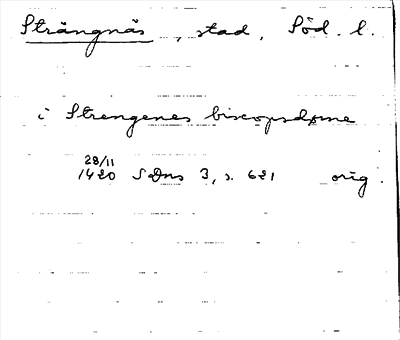 Strängnäs, stad, Söd. l.
i Strengenes biscopsdøme
28/11
1420 SDns 3, s. 621 orig.